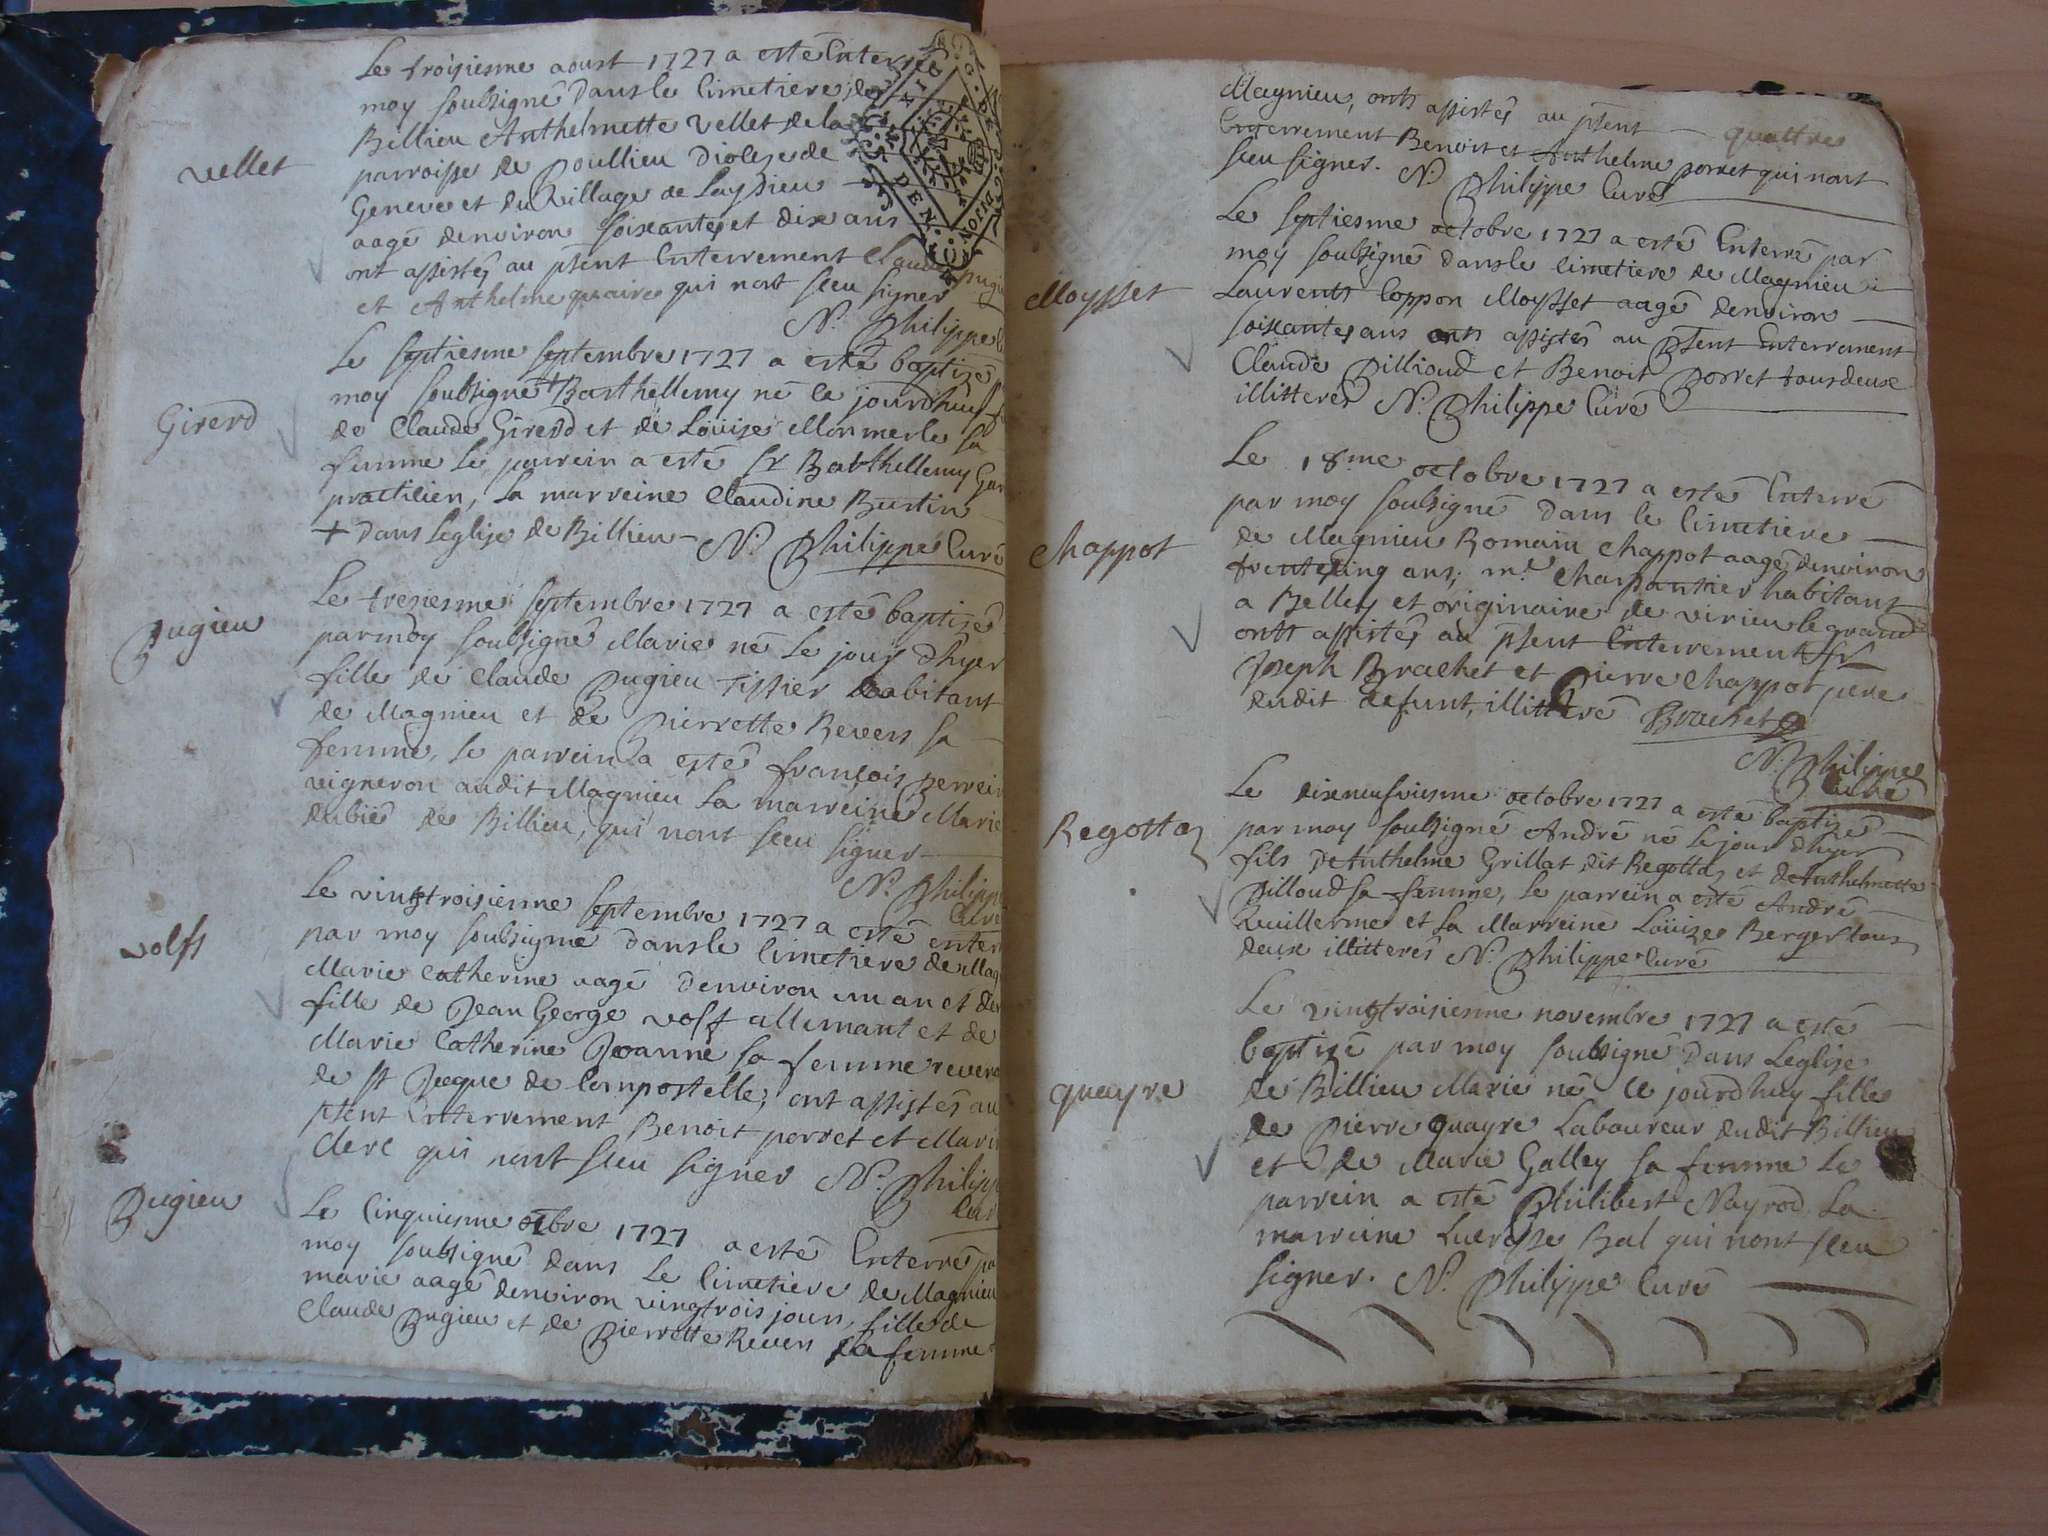 Le troisiesme aoust 1727 a esté Enterré
moy soubsigné dans le Cimetiere de
Billieu Anthelmette Vellet de la
vellet
parroisse de Poullieu Diocese de
Geneve et du Village de Layssieu
aagé denviron soixantes et dix ans
ont assistés au pñt Enterrement Claude pugieu
et Anthelme quaire qui nont sceu signer
N. Philippe
Le septiesme septembre 1727 a esté baptizé
moy soubsigné + Barthellemy né ce jourdhuy
Girerd
de Claude Girerd et de Loüize Monmerle sa
femme Le parrein a esté Sr Barthellemy
practicien, La marreine Claudine Burtin
+ dans Leglise de Billieu N. Philippe Curé
Le tresiesme septembre 1727 a esté baptisé
Pugieu
par moy soubsigné Marie né Le jour dhyer
fille de Claude Pugieu Tissier habitant
de Magnieu et de Pierrette Revers sa
femme, Le parrein a esté françois perrein
vigneron audit Magnieu La marreine Marie
dubié de Billieu, qui nont sceu signer
N. Philippe
Curé
Le vingtroisienne septembre 1727 a esté enterré
volfs
par moy soubsigné dans le Cimetiere de Mag
Marie Catherine aagé denviron un an et de
fille de Jean George volff allemant et de
Marie Catherine Joanné sa femme
de St Jacque de Compostelle; ont assistés au
psent Enterrement Benoit porret et Mari
Clerc qui nont sceu signer N. Philipp
Cur
Pugieu
Le Cinquiesme octbre 1727 a esté Enterré pa
moy soubsigné dans Le Cimetiere de Magnieu
marie aagé denviron vingtrois jours, fille de
Claude Pugieu et de Pierrette Revers sa femme
Magnieu, onts assistés au psent quattre
Enterrement Benoit et Anthelme porret qui nont
sceu signer. N. Philippe Curé
Le septiesme octobre 1727 a esté Enterré par
moy soubsigné dans le Cimetiere de Magnieu
Moysset
Laurents Coppon Moysset aagé denviron
soixantes ans onts assistés au psent Enterrement
Claude Pillioud et Benoit Porret tous deux
illitterés N. Philippe Curé
Le 18me octobre 1727 a esté Enterré
par moy soubsigné dans le Cimetiere
Chappot
de Magnieu Romain Chappot aagé denviron
trente cinq ans; me Charpantier habitant
a Belley et originaire de virieu le grand
onts assistés au psent Enterrement Sr
Joseph Brachet et Pierre Chappot pere
dudit defunt, illitteré Brachet
N. Philippe
Curé
Le dixneufviesme octobre 1727 a esté baptizé
Regottaz
par moy soubsigné André né Le jour dhyer
fils de Anthelme Grillat dit Regottaz et de Anthelmette
Pilloud sa femme, Le parrein a esté André
Quillerme et La Marreine Loüize Berger tous
deux illitterés N. Philippe Curé
Le vingtroisienne novembre 1727 a esté
baptizé par moy soubsigné dans Leglise
quayre
de Billieu Marie né ce jourdhuy fille
de Pierre quayre Laboureur dudit Billieu
et de Marie Galley sa femme Le
parrein a esté Philibert Nayrod La
marreine Lucresse Bal qui nont sceu
signer. N. Philippe Curé